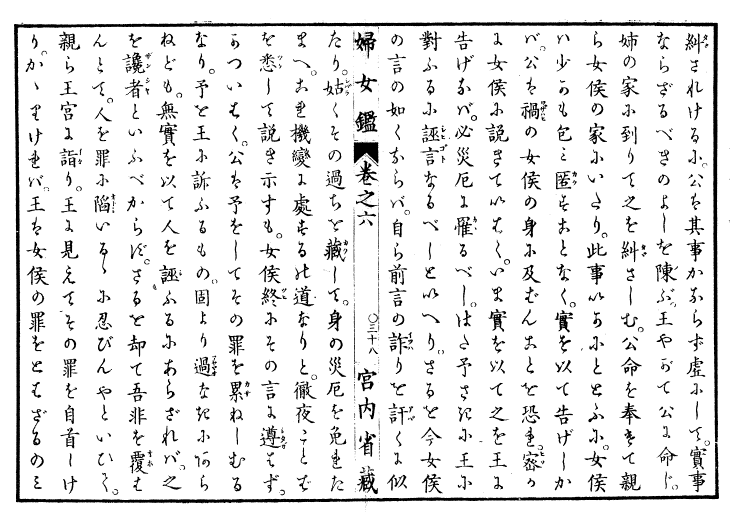 糾されけるに。公は其事かならず虚にして。實事
ならざるべきのよしを陳ぶ。王やがて公に命じ。
姉の家に到りて之を糾さしむ。公命を奉じて親
ら女侯の家にいたり。此事いかにととふに。女侯
は少しも包み匿すことなく。實を以て告げしか
ば。公を禍の女侯の身に及ばんことを恐れ。密か
に女侯に説きていはく。いま實を以て之を王に
告げなば。必災厄に罹るべし。はた予さきに王に
對ふるに誣言なるべしといへり。さると今女侯
の言の如くならば。自ら前言の詐りを訐くに似
たり。姑くその過ちを藏して。身の災厄を免れた
まへ。これ機變に處するの道なりと。徹夜ことば
を悉して説き示すも。女侯終にその言に遵はず。
かついはく。公は予をしてその罪を累ねしむる
なり。予を王に訴ふるもの。固より過なきにあら
ねども。無實を以て人を誣ふるにあらざれば。之
を讒者といふべからず。さるを却て吾非を覆は
んとて。人を罪に陷いるゝに忍びんやといひて。
親ら王宮に詣り。王に見えてその罪を自首しけ
り。かゝりければ。王は女侯の罪をとはざるのミ
婦女鑑 卷之六 〇三十八 宮内省藏